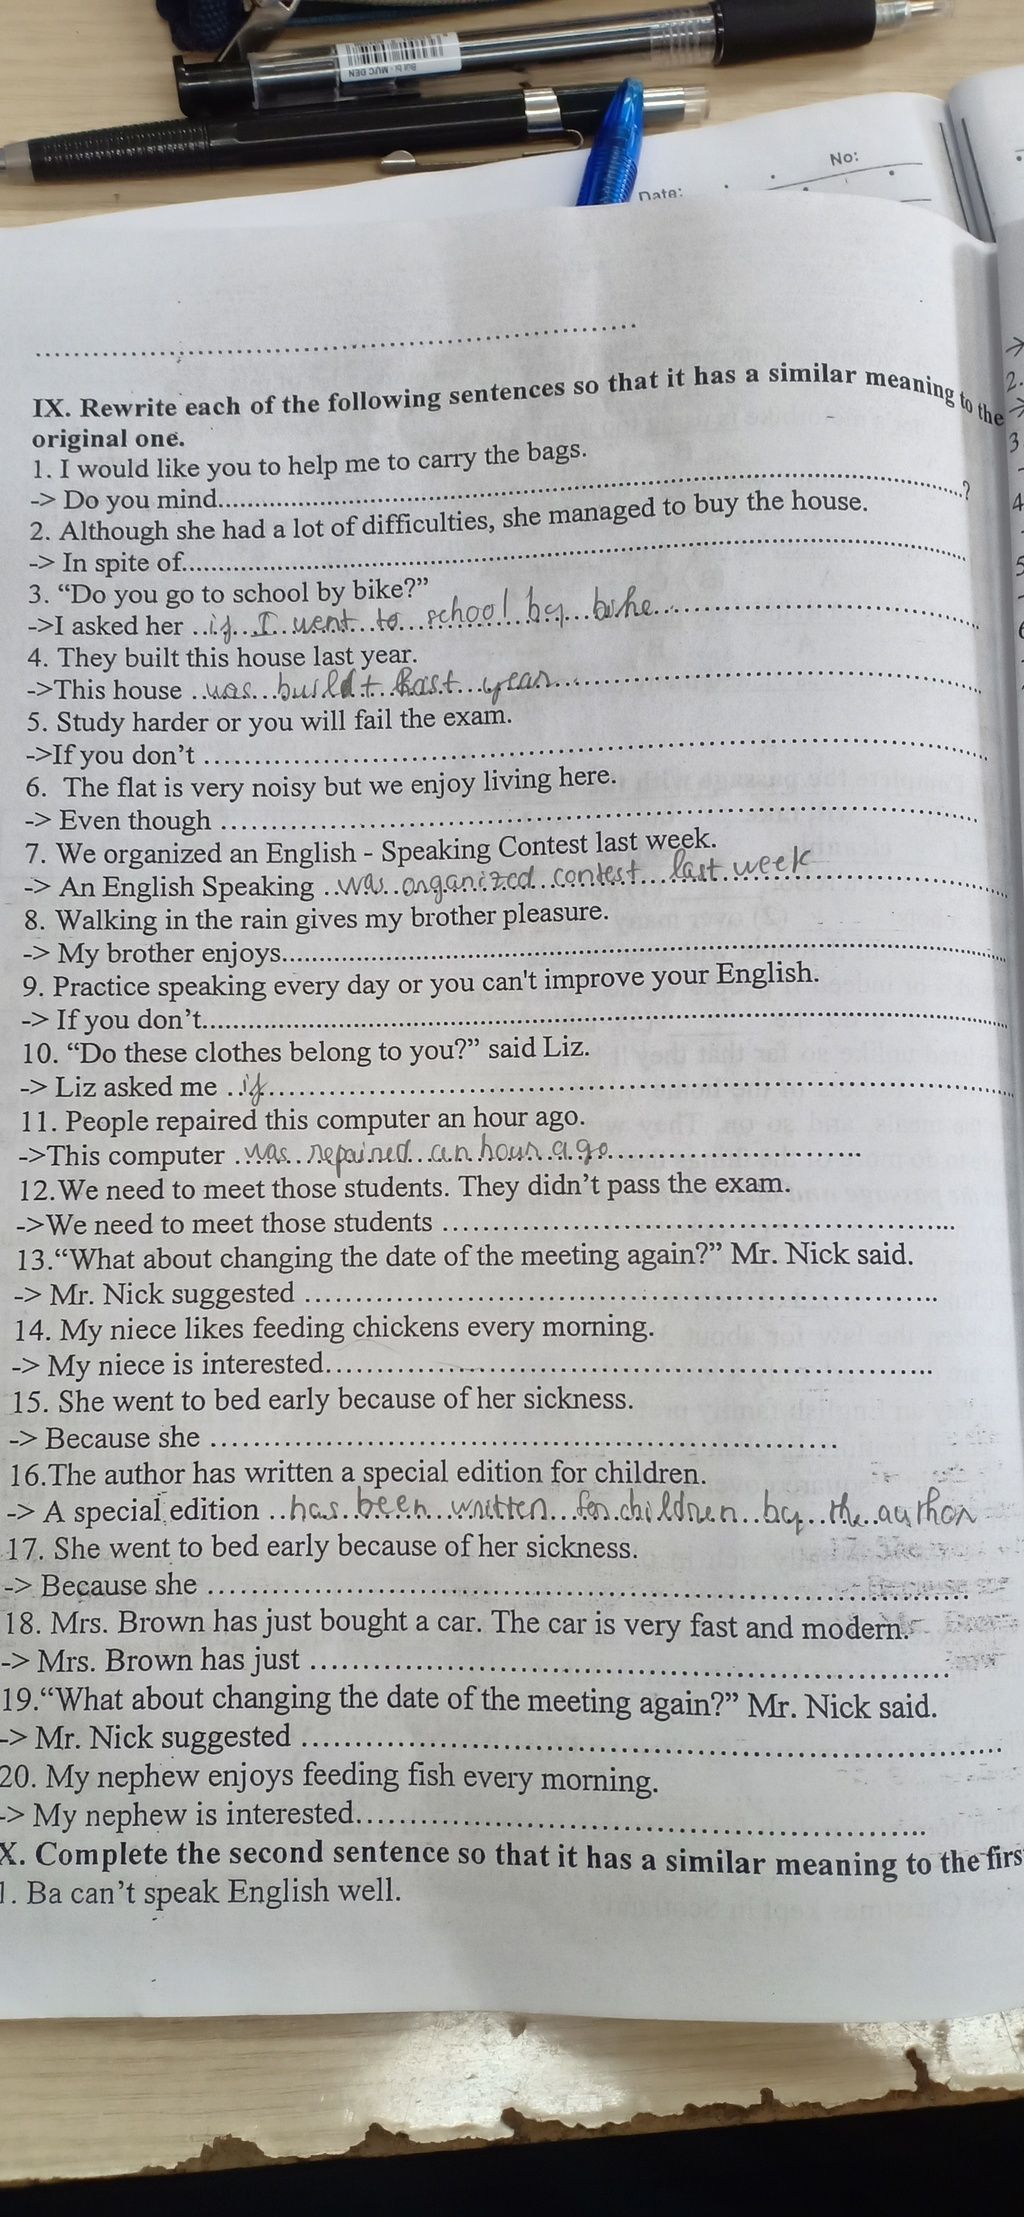 No:
Date:
IX. Rewrite each of the following sentences so that it has a similar meaning to the
original one.
1. I would like you to help me to carry the bags.
-> Do you mind.......................................?
2. Although she had a lot of difficulties, she managed to buy the house.
-> In spite of.......................................
3. “Do you go to school by bike?”
->I asked her ..if..I..went..to..school..by..bike.......
4. They built this house last year.
->This house ..was..buildt..last..year.......
5. Study harder or you will fail the exam.
->If you don’t .......................................
6. The flat is very noisy but we enjoy living here.
-> Even though .......................................
7. We organized an English - Speaking Contest last week.
-> An English Speaking ..was..organized..contest..last..week
8. Walking in the rain gives my brother pleasure.
-> My brother enjoys.......................................
9. Practice speaking every day or you can't improve your English.
-> If you don’t.......................................
10. “Do these clothes belong to you?” said Liz.
-> Liz asked me ..if.......................................
11. People repaired this computer an hour ago.
->This computer ..was..repaired..an hour..ago.......
12.We need to meet those students. They didn’t pass the exam.
->We need to meet those students .......................................
13.“What about changing the date of the meeting again?” Mr. Nick said.
-> Mr. Nick suggested .......................................
14. My niece likes feeding chickens every morning.
-> My niece is interested.......................................
15. She went to bed early because of her sickness.
-> Because she .......................................
16.The author has written a special edition for children.
-> A special edition ..has..been..written..for..children..by..the..author
17. She went to bed early because of her sickness.
-> Because she .......................................
18. Mrs. Brown has just bought a car. The car is very fast and modern.
-> Mrs. Brown has just .......................................
19.“What about changing the date of the meeting again?” Mr. Nick said.
-> Mr. Nick suggested .......................................
20. My nephew enjoys feeding fish every morning.
-> My nephew is interested.......................................
X. Complete the second sentence so that it has a similar meaning to the firs
1. Ba can’t speak English well.
2.
3
4
5